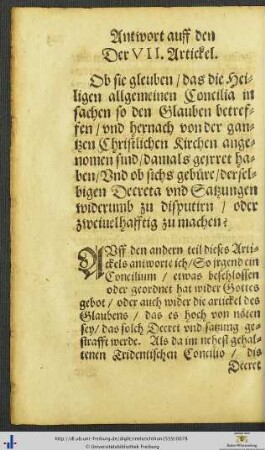 Antwort auff den
Der VII. Artickel.
Ob sie gleuben / das die Hei-
ligen allgemeinen Concilia in
sachen so den Glauben betref-
fen / vnd hernach von der gan-
tzen Christlichen Kirchen ange-
nomen sind / damals geirret ha-
ben / Vnd ob sichs gebüre / dersel-
bigen Decreta vnd Satzungen
widerumb zu disputirn / oder
zweiuelhafftig zu machen?
AVff den andern teil dieses Arti-
ckels antworte ich / So irgend ein
Concilium / etwas beschlossen
oder geordnet hat wider Gottes
gebot / oder auch wider die artickel des
Glaubens / das es hoch von nöten
sey / das solch Decret vnd satzung ge-
strafft werde. Als da im nehest gehal-
tenen Tridentischen Concilio / dis
Decret
http://dl.ub.uni-freiburg.de/diglit/
Universitätsbibliothek Freiburg
Baden-Württemberg